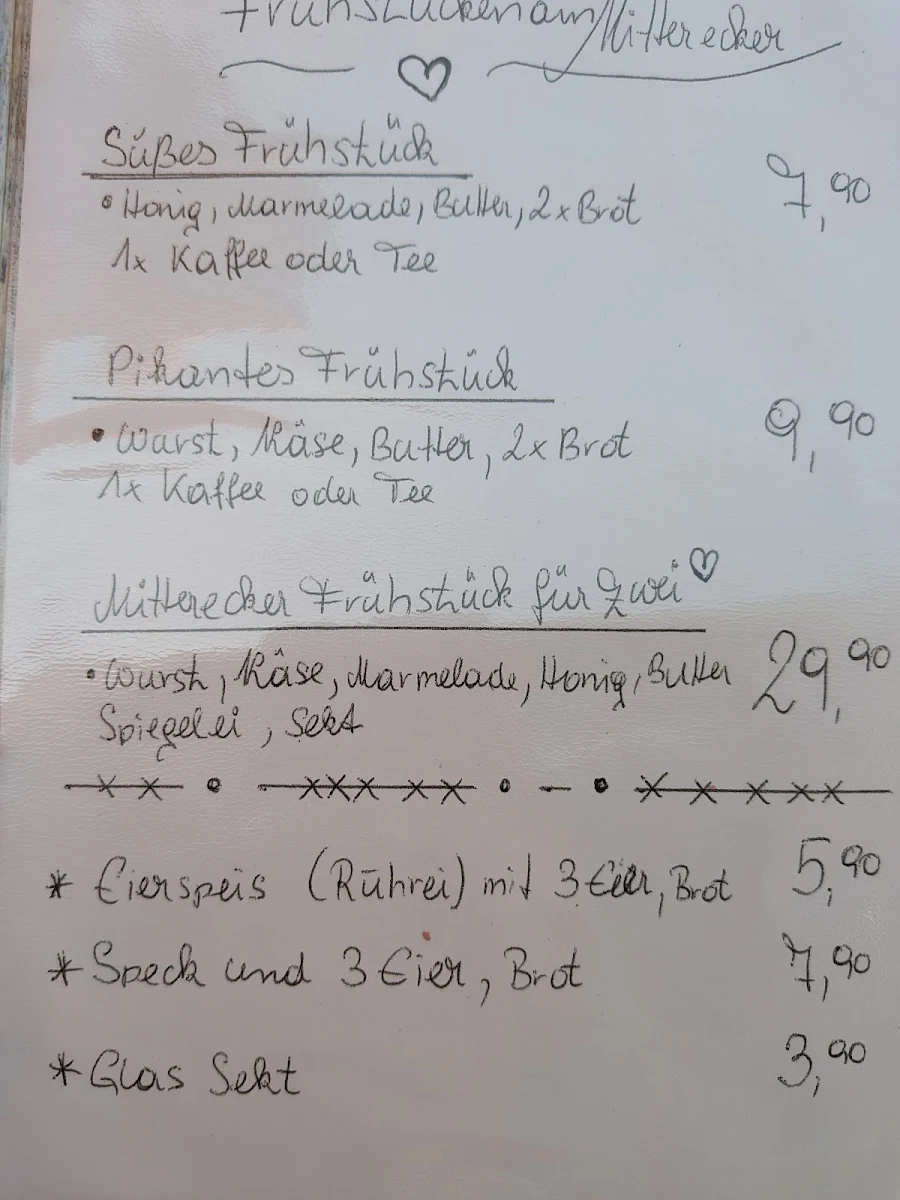 Frühstücken am Mitterecker
Süßes Frühstück
• Honig, Marmelade, Butter, 2x Brot 7,90
1x Kaffee oder Tee
Pikantes Frühstück
• Wurst, Käse, Butter, 2x Brot 9,90
1x Kaffee oder Tee
Mitterecker Frühstück für Zwei
• Wurst, Käse, Marmelade, Honig, Butter 29,90
Spiegelei, Sekt
* Eierspeis (Rührei) mit 3 Eier, Brot 5,90
* Speck und 3 Eier, Brot 7,90
* Glas Sekt 3,90